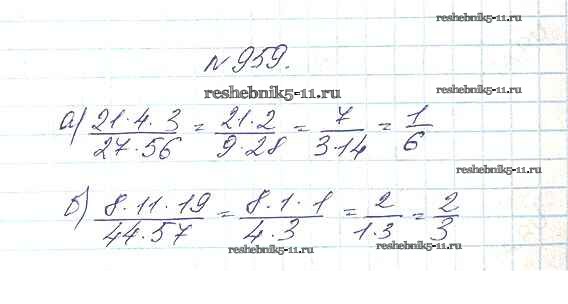 reshebnik5-11.ru
№ 959.
reshebnik5-11.ru
reshebnik5-11.ru
а) 21·4·3/27·56 = 21·2/9·28 = 7/3·14 = 1/6
reshebnik5-11.ru
б) 8·11·19/44·57 = 8·1·1/4·3 = 2/1·3 = 2/3
reshebnik5-11.ru
reshebnik5-11.ru